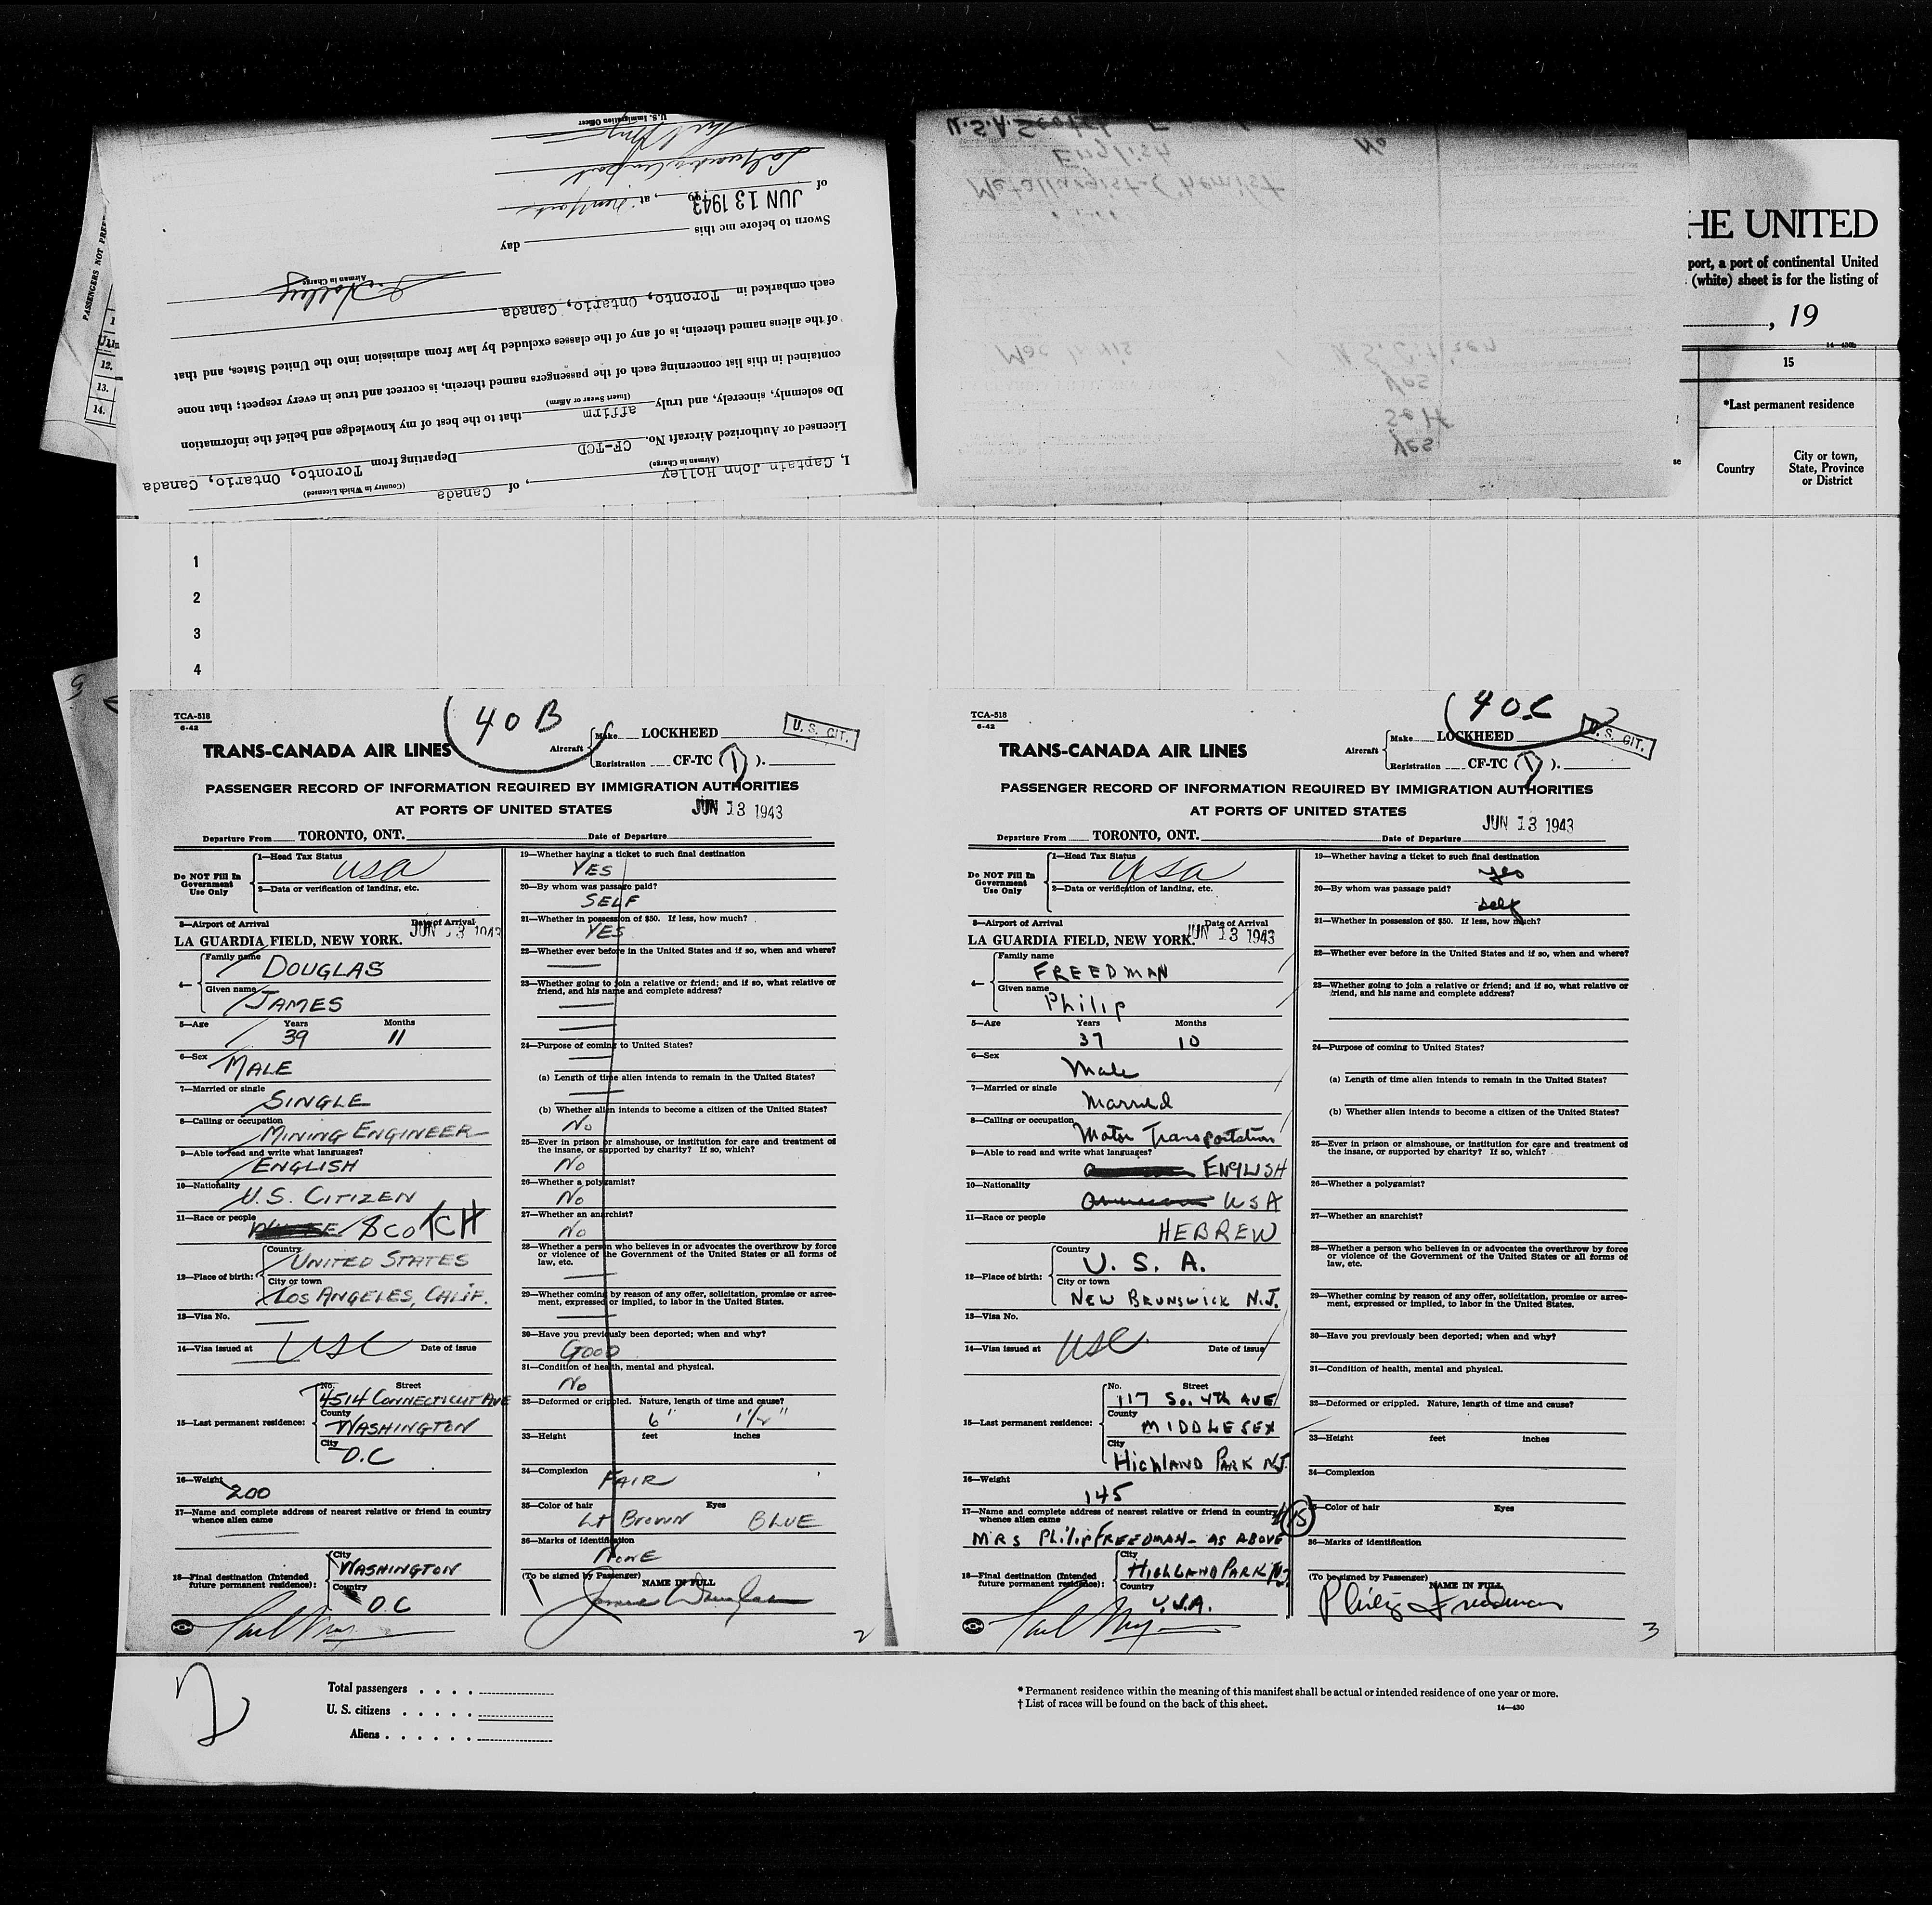 PASSENGERS NOT PRE
12.
13.
14.
I, Captain John Holley, of Canada
(Airman in Charge) (Country in Which Licensed)
Licensed or Authorized Aircraft No. CF-TCD Departing from Toronto, Ontario, Canada
Do solemnly, sincerely, and truly affirm that to the best of my knowledge and belief the information
(Insert Swear or Affirm)
contained in this list concerning each of the passengers named therein, is correct and true in every respect; that none
of the aliens named therein, is of any of the classes excluded by law from admission into the United States, and that
each embarked in Toronto, Ontario, Canada
Holley
Airman in Charge
Sworn to before me this day
of JUN 13 1943 19, at New York
U.S. Immigration Officer
U.S.A. Scotch
English No
Metallurgist-Chemist
U.S. Citizen
Yes
Self
Yes
HE UNITED
port, a port of continental United
(white) sheet is for the listing of
, 19
15
*Last permanent residence
Country
City or town,
State, Province
or District
1
2
3
4
TCA-518
6-42
40 B
U. S. CIT.
TRANS-CANADA AIR LINES
Aircraft
Make LOCKHEED
Registration CF-TC (D).
PASSENGER RECORD OF INFORMATION REQUIRED BY IMMIGRATION AUTHORITIES
AT PORTS OF UNITED STATES
JUN 13 1943
Departure From TORONTO, ONT. Date of Departure
Do NOT Fill In
Government
Use Only
1—Head Tax Status
USA
2—Data or verification of landing, etc.
3—Airport of Arrival Date of Arrival
LA GUARDIA FIELD, NEW YORK. JUN 13 1943
4—
Family name
DOUGLAS
Given name
JAMES
5—Age Years Months
39 11
6—Sex
MALE
7—Married or single
SINGLE
8—Calling or occupation
MINING ENGINEER
9—Able to read and write what languages?
ENGLISH
10—Nationality
U.S. CITIZEN
11—Race or people
SCOTCH
12—Place of birth:
Country
UNITED STATES
City or town
LOS ANGELES, CALIF.
13—Visa No.
14—Visa issued at USC Date of issue
15—Last permanent residence:
No. Street
4514 CONNECTICUT AVE
County
WASHINGTON
City
D.C
16—Weight
200
17—Name and complete address of nearest relative or friend in country
whence alien came
18—Final destination (Intended
future permanent residence):
City
WASHINGTON
Country
D.C
19—Whether having a ticket to such final destination
YES
20—By whom was passage paid?
SELF
21—Whether in possession of $50. If less, how much?
YES
22—Whether ever before in the United States and if so, when and where?
23—Whether going to join a relative or friend; and if so, what relative or
friend, and his name and complete address?
24—Purpose of coming to United States?
(a) Length of time alien intends to remain in the United States?
(b) Whether alien intends to become a citizen of the United States?
No
25—Ever in prison or almshouse, or institution for care and treatment of
the insane, or supported by charity? If so, which?
No
26—Whether a polygamist?
No
27—Whether an anarchist?
No
28—Whether a person who believes in or advocates the overthrow by force
or violence of the Government of the United States or all forms of
law, etc.
29—Whether coming by reason of any offer, solicitation, promise or agree-
ment, expressed or implied, to labor in the United States.
30—Have you previously been deported; when and why?
GOOD
31—Condition of health, mental and physical.
No
32—Deformed or crippled. Nature, length of time and cause?
6" 1½"
33—Height feet inches
34—Complexion
FAIR
35—Color of hair Eyes
Lt BROWN BLUE
36—Marks of identification
NONE
(To be signed by Passenger) NAME IN FULL
James Douglas
2
TCA-518
6-42
40C
U. S. CIT.
TRANS-CANADA AIR LINES
Aircraft
Make LOCKHEED
Registration CF-TC (D).
PASSENGER RECORD OF INFORMATION REQUIRED BY IMMIGRATION AUTHORITIES
AT PORTS OF UNITED STATES
JUN 13 1943
Departure From TORONTO, ONT. Date of Departure
Do NOT Fill In
Government
Use Only
1—Head Tax Status
USA
2—Data or verification of landing, etc.
3—Airport of Arrival Date of Arrival
LA GUARDIA FIELD, NEW YORK. JUN 13 1943
4—
Family name
FREEDMAN
Given name
Philip
5—Age Years Months
37 10
6—Sex
Male
7—Married or single
Married
8—Calling or occupation
Motor Transportation
9—Able to read and write what languages?
ENGLISH
10—Nationality
American USA
11—Race or people
HEBREW
12—Place of birth:
Country
U. S. A.
City or town
NEW BRUNSWICK N.J.
13—Visa No.
14—Visa issued at USC Date of issue
15—Last permanent residence:
No. Street
117 So. 4th AVE
County
MIDDLESEX
City
HIGHLAND PARK N.J.
16—Weight
145
17—Name and complete address of nearest relative or friend in country
whence alien came
MRS Philip FREEDMAN - AS ABOVE
18—Final destination (Intended
future permanent residence):
City
HIGHLAND PARK NJ
Country
U.S.A.
19—Whether having a ticket to such final destination
yes
20—By whom was passage paid?
self
21—Whether in possession of $50. If less, how much?
22—Whether ever before in the United States and if so, when and where?
23—Whether going to join a relative or friend; and if so, what relative or
friend, and his name and complete address?
24—Purpose of coming to United States?
(a) Length of time alien intends to remain in the United States?
(b) Whether alien intends to become a citizen of the United States?
25—Ever in prison or almshouse, or institution for care and treatment of
the insane, or supported by charity? If so, which?
26—Whether a polygamist?
27—Whether an anarchist?
28—Whether a person who believes in or advocates the overthrow by force
or violence of the Government of the United States or all forms of
law, etc.
29—Whether coming by reason of any offer, solicitation, promise or agree-
ment, expressed or implied, to labor in the United States.
30—Have you previously been deported; when and why?
31—Condition of health, mental and physical.
32—Deformed or crippled. Nature, length of time and cause?
33—Height feet inches
34—Complexion
35—Color of hair Eyes
36—Marks of identification
(To be signed by Passenger) NAME IN FULL
Philip Freedman
3
2
Total passengers
U. S. citizens
Aliens
* Permanent residence within the meaning of this manifest shall be actual or intended residence of one year or more.
† List of races will be found on the back of this sheet.
14—430